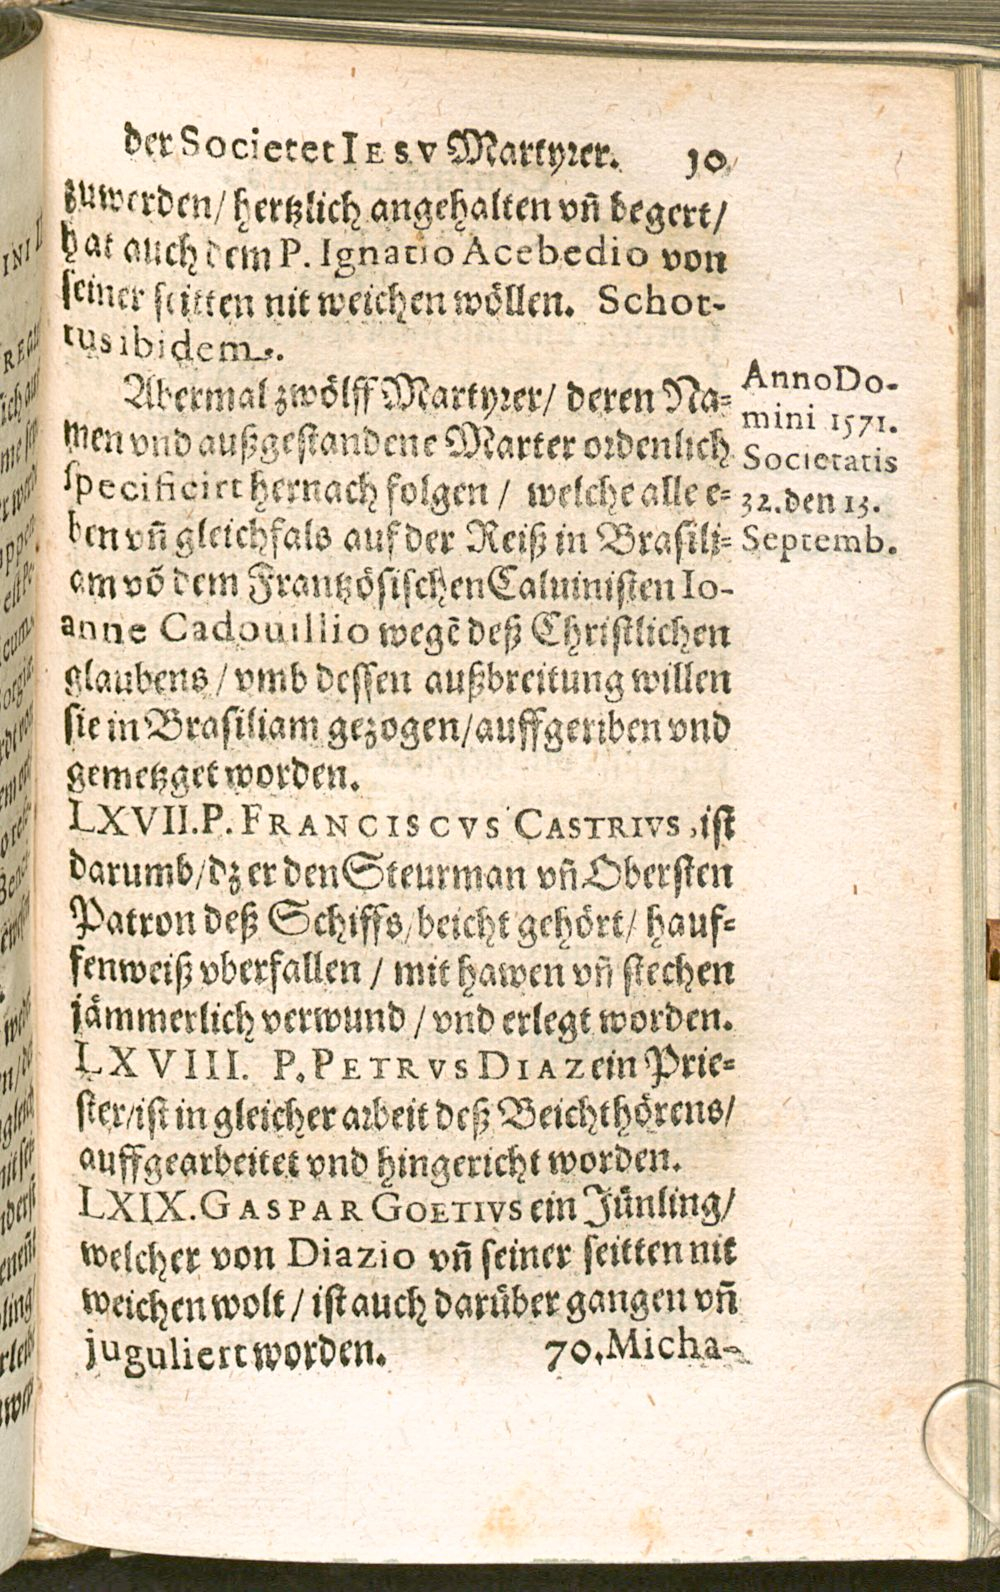 der Societet IESV Martyrer. 10
zuwerden/ hertzlich angehalten vñ begert/
hat auch dem P. Ignatio Acebedio von
seiner seitten nit weichen wöllen. Schot-
tus ibidem.
Abermal zwölff Martyrer/ deren Na-
men vnd außgestandene Marter ordenlich
specificirt hernach folgen / welche alle e-
ben vñ gleichfals auf der Reiß in Brasili-
am võ dem Frantzösischen Caluinisten Io-
anne Cadouillio wegẽ deß Christlichen
glaubens / vmb dessen außbreitung willen
sie in Brasiliam gezogen/ auffgeriben vnd
gemetzget worden.
Anno Do-
mini 1571.
Societatis
32. den 13.
Septemb.
LXVII. P. FRANCISCVS CASTRIVS, ist
darumb/ dz er den Steurman vñ Obersten
Patron deß Schiffs/ beicht gehört/ hauf-
fenweiß vberfallen / mit hawen vñ stechen
jämmerlich verwund / vnd erlegt worden.
LXVIII. P. PETRVS DIAZ ein Prie-
ster/ ist in gleicher arbeit deß Beichthörens/
auffgearbeitet vnd hingericht worden.
LXIX. GASPAR GOETIVS ein Jünling/
welcher von Diazio vñ seiner seitten nit
weichen wolt / ist auch darüber gangen vñ
juguliert worden. 70. Micha-